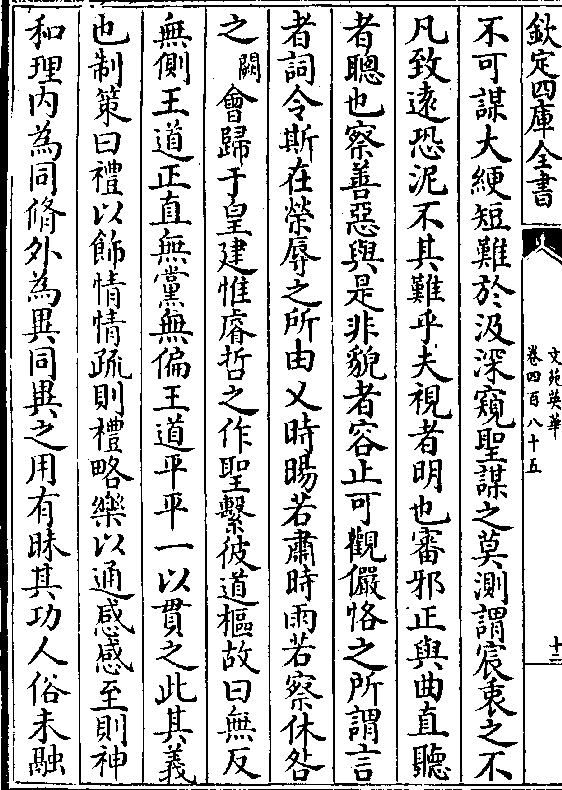 欽定四庫全書
文苑英華
卷四百八十五
十三
不可謀大綆短難於汲深窺聖謀之莫測謂宸衷之不
凡致遠恐泥不其難乎夫視者明也審邪正與曲直聽
者聰也察善惡與是非貌者容止可觀儼恪之所謂言
者詞令斯在榮辱之所由乂時暘若肅時雨若察休咎
之闕會歸于皇建惟睿哲之作聖繫彼道樞故曰無反
無側王道正直無黨無偏王道平平一以貫之此其義
也制策曰禮以飾情情疏則禮略樂以通感感至則神
和理内為同脩外為異同異之用有昧其功人俗未融